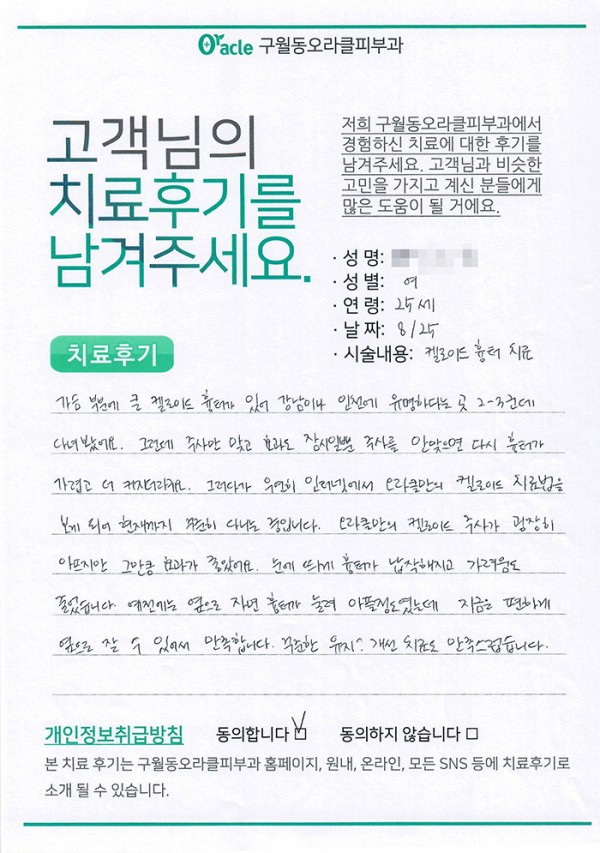 Oracle 구월동오라클피부과
고객님의
치료후기를
남겨주세요.
저희 구월동오라클피부과에서
경험하신 치료에 대한 후기를
남겨주세요. 고객님과 비슷한
고민을 가지고 계신 분들에게
많은 도움이 될 거예요.
· 성 명:
· 성 별: 여
· 연 령: 25세
· 날 짜: 8/25
· 시술내용: 켈로이드 흉터 치료
치료후기
가슴 부분에 큰 켈로이드 흉터가 있어 강남이나 인천에 유명하다는 곳 2-3군데
다녀봤어요. 그런데 주사만 맞고 효과도 잠시일뿐 주사를 안맞으면 다시 흉터가
가렵고 더 커지더라구요. 그러다가 우연히 인터넷에서 오라클만의 켈로이드 치료법을
보게 되어 현재까지 꾸준히 다니는 중입니다. 오라클만의 켈로이드 주사가 굉장히
아프지만 그만큼 효과가 좋았어요. 눈에 띄게 흉터가 납작해지고 가려움도
줄었습니다. 예전에는 옆으로 자면 흉터가 눌려 아플정도였는데 지금은 편하게
옆으로 잘 수 있어서 만족합니다. 꾸준한 유지, 개선 치료도 만족스럽습니다.
개인정보취급방침 동의합니다 동의하지 않습니다
본 치료 후기는 구월동오라클피부과 홈페이지, 원내, 온라인, 모든 SNS 등에 치료후기로
소개 될 수 있습니다.